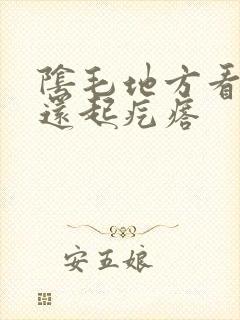 陰毛地方看
還起疙瘩
安五娘